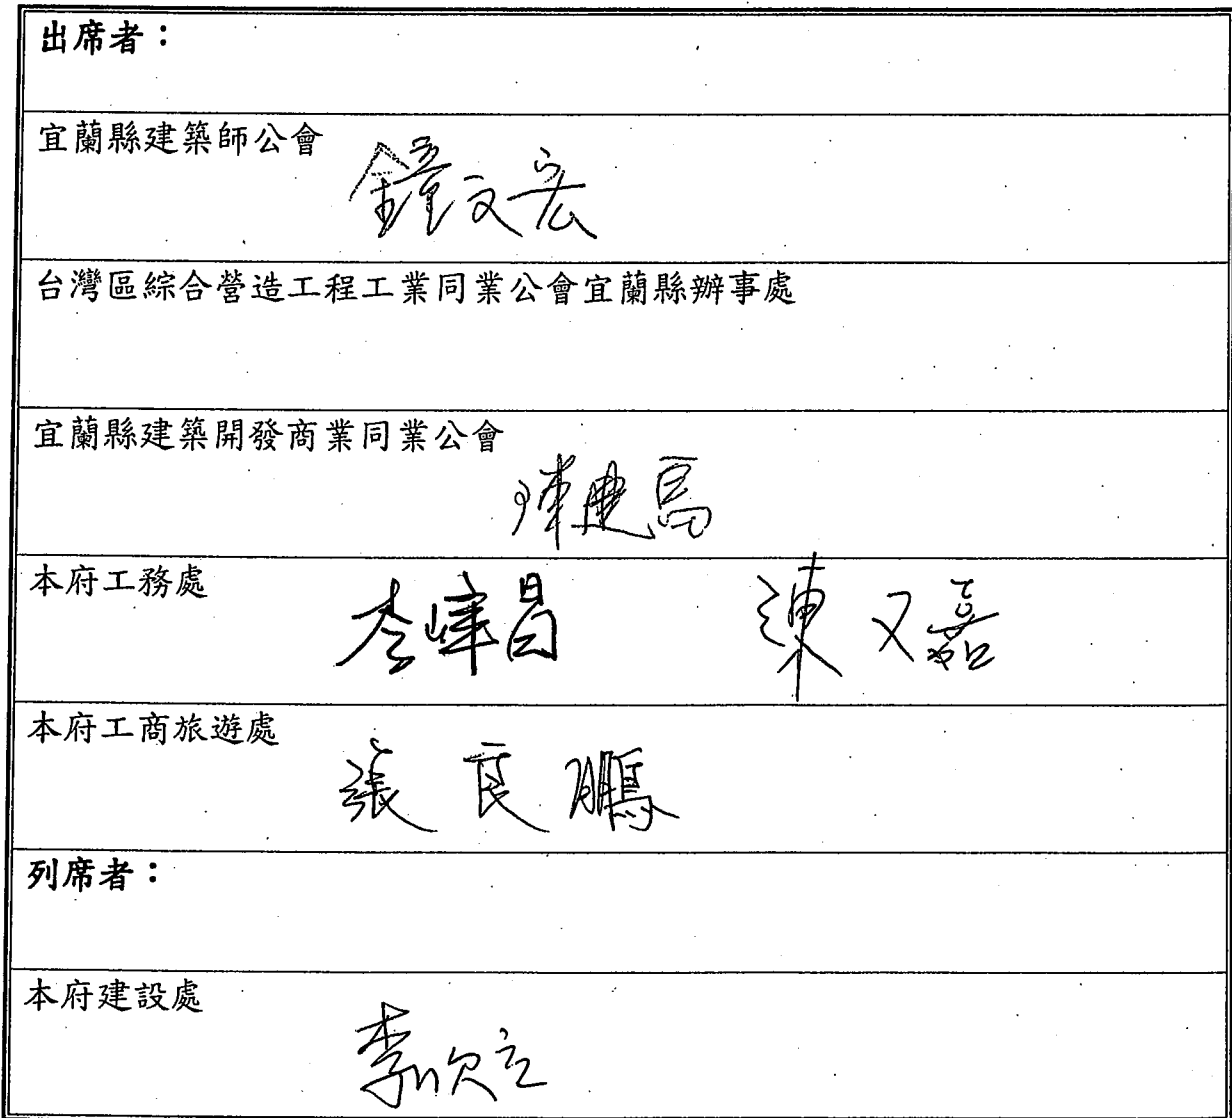 出席者：
宜蘭縣建築師公會
鐘文宏
台灣區綜合營造工程工業同業公會宜蘭縣辦事處
宜蘭縣建築開發商業同業公會
陳建
本府工務處
李嶂昌 陳又嘉
本府工商旅遊處
張良鵬
列席者：
本府建設處
李欣立